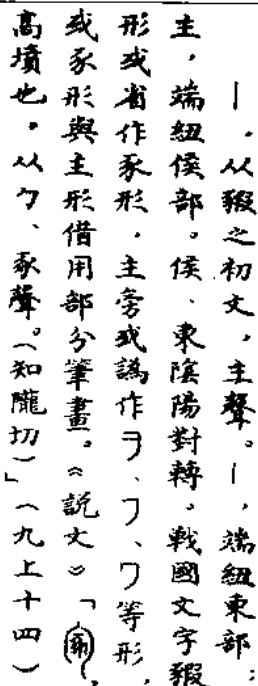 ｜，从豭之初文，主聲。｜，端紐東部；
主，端紐侯部。侯、東陰陽對轉。戰國文字豭
形或省作豕形，主旁或譌作、、等形，
或豕形與主形借用部分筆畫。《說文》「，
高墳也。从勹、豖聲。（知隴切）」（九上十四）